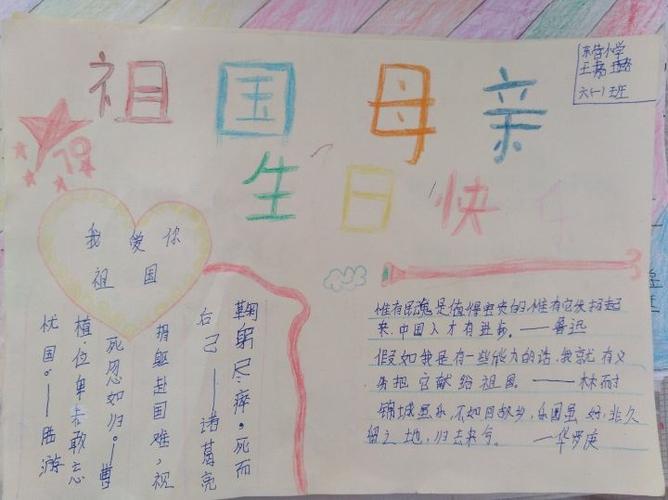 祖国母亲
生日快
小学
六(一)班
我爱你
祖国
鞠躬尽瘁,死而
右己——诸葛亮
捐躯赴国难,视
死忽如归。——曹
植·位卑未敢忘
忧国。——陆游
惟有民魂是值得宝贵的,惟有它发扬起
来,中国人才有进步。——鲁迅
假如我是有一些能力的话,我就有义
务把它献给祖国。——林耐
锦城虽乐,不如回故乡,乐园虽好,非久
留之地,归去来兮。——华罗庚